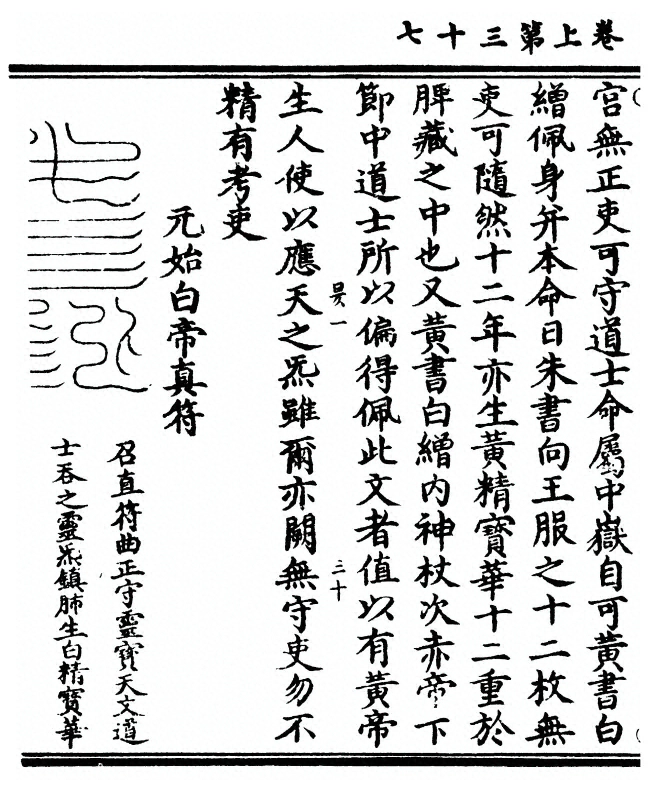 卷上第三十七
宮無正吏可守道士命屬中嶽自可黃書白
繒佩身并本命日朱書向王服之十二枚無
吏可隨然十二年亦生黃精寶華十二重於
脾藏之中也又黃書白繒內神杖次赤帝下
節中道士所以偏得佩此文者值以有黃帝
三十
生人使以應天之炁雖爾亦闕無守吏勿不
精有考吏
元始白帝真符
召直符曲正守靈寶天文道
士吞之靈炁鎮肺生白精寶華